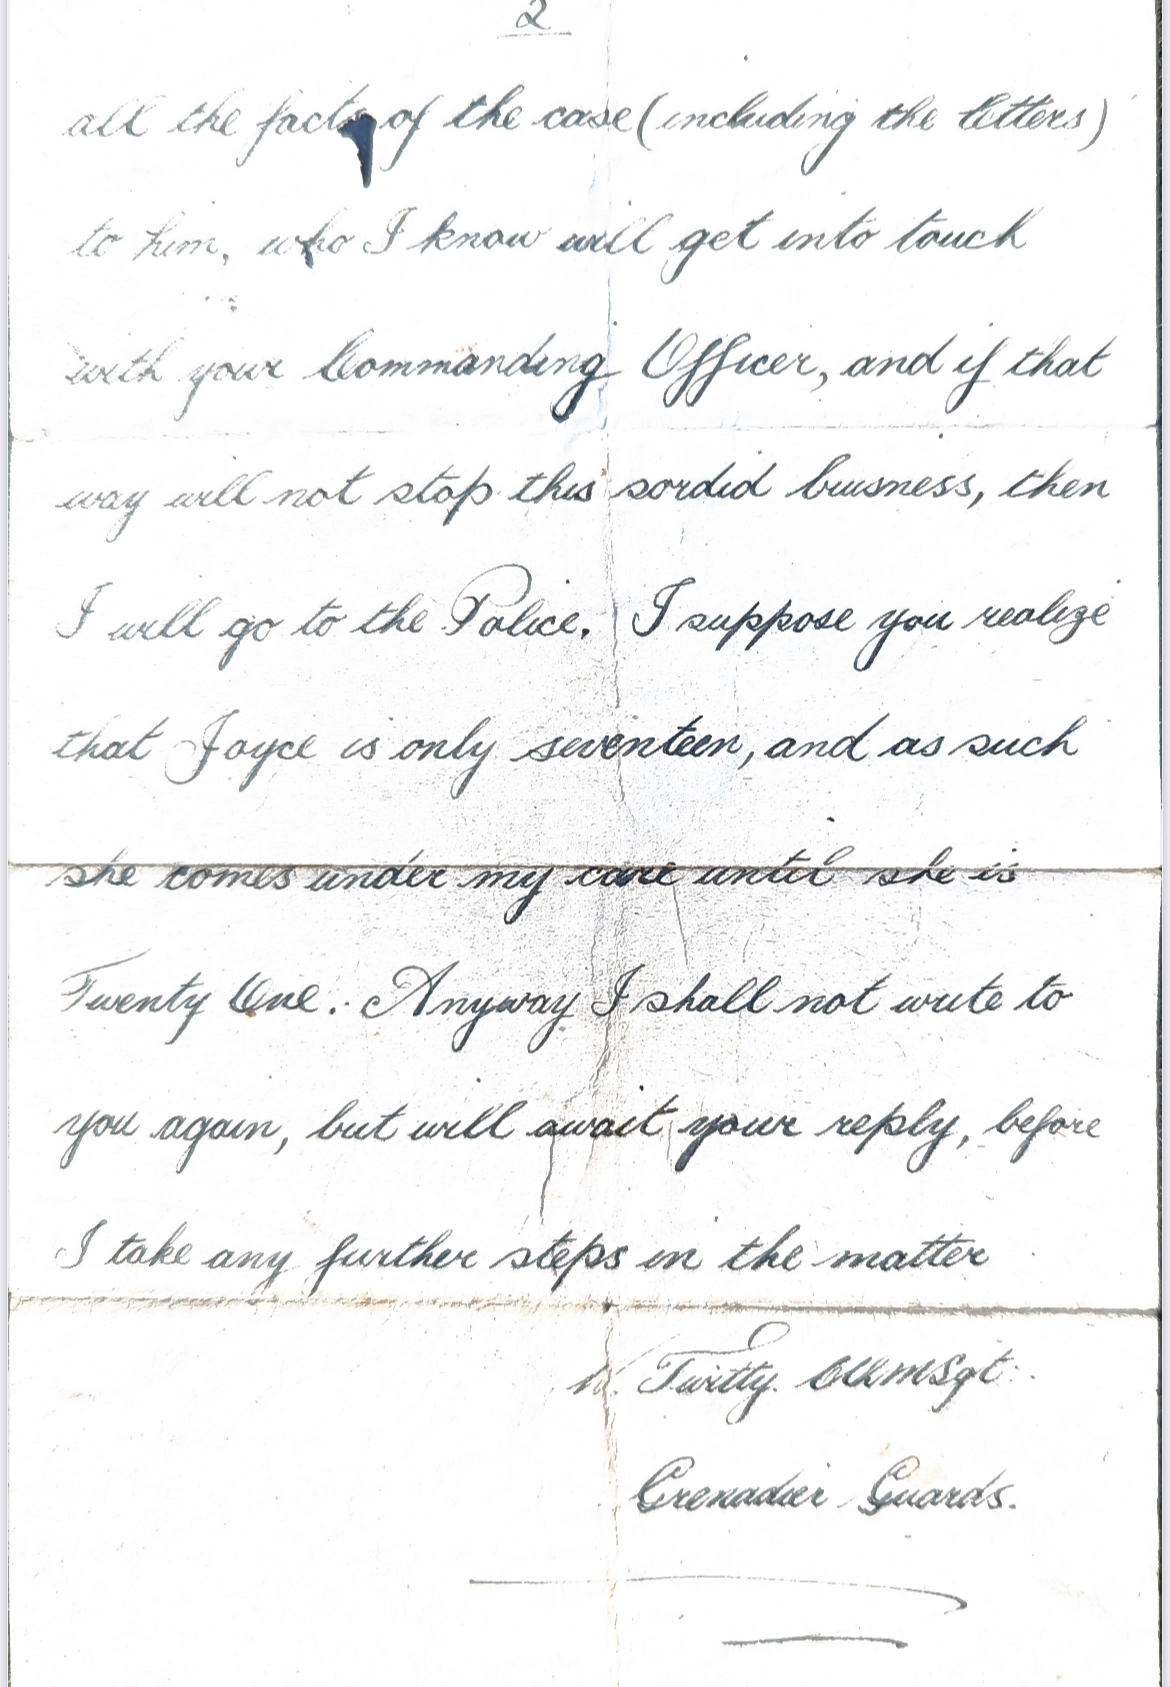 2
all the facts of the case (including the letters)
to him, who I know will get into touch
with your Commanding Officer, and if that
way will not stop this sordid buisness, then
I will go to the Police. I suppose you realize
that Joyce is only seventeen, and as such
she comes under my care until she is
Twenty One. Anyway I shall not write to
you again, but will await your reply, before
I take any further steps in the matter
Twitty.
Grenadier Guards.